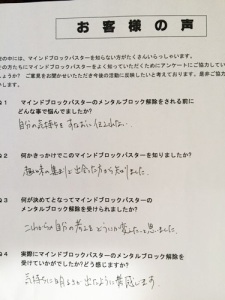 お客様の声
その中には、マインドブロックバスターを知らない方がたくさんいらっしゃいます。
その方たちにマインドブロックバスターをよく知っていただくためにアンケートにご協力してい
しょうか? ご意見をお聞かせいただき今後の活動に反映したいと考えております。是非ご協力
します。
Q1 マインドブロックバスターのメンタルブロック解除をされる前に
どんな事で悩んでましたか?
自分の気持ちをすなおに伝えられない
Q2 何かきっかけでこのマインドブロックバスターを知りましたか?
趣味の集まりで出会った方から知りました。
Q3 何が決めてとなってマインドブロックバスターの
メンタルブロック解除を受けられましたか?
これからの自分の考えをどうにか変えたいと思いました。
Q4 実際にマインドブロックバスターのメンタルブロック解除を
受けていかがでしたか?どう感じますか?
気持ちに明るさが出たように実感します。